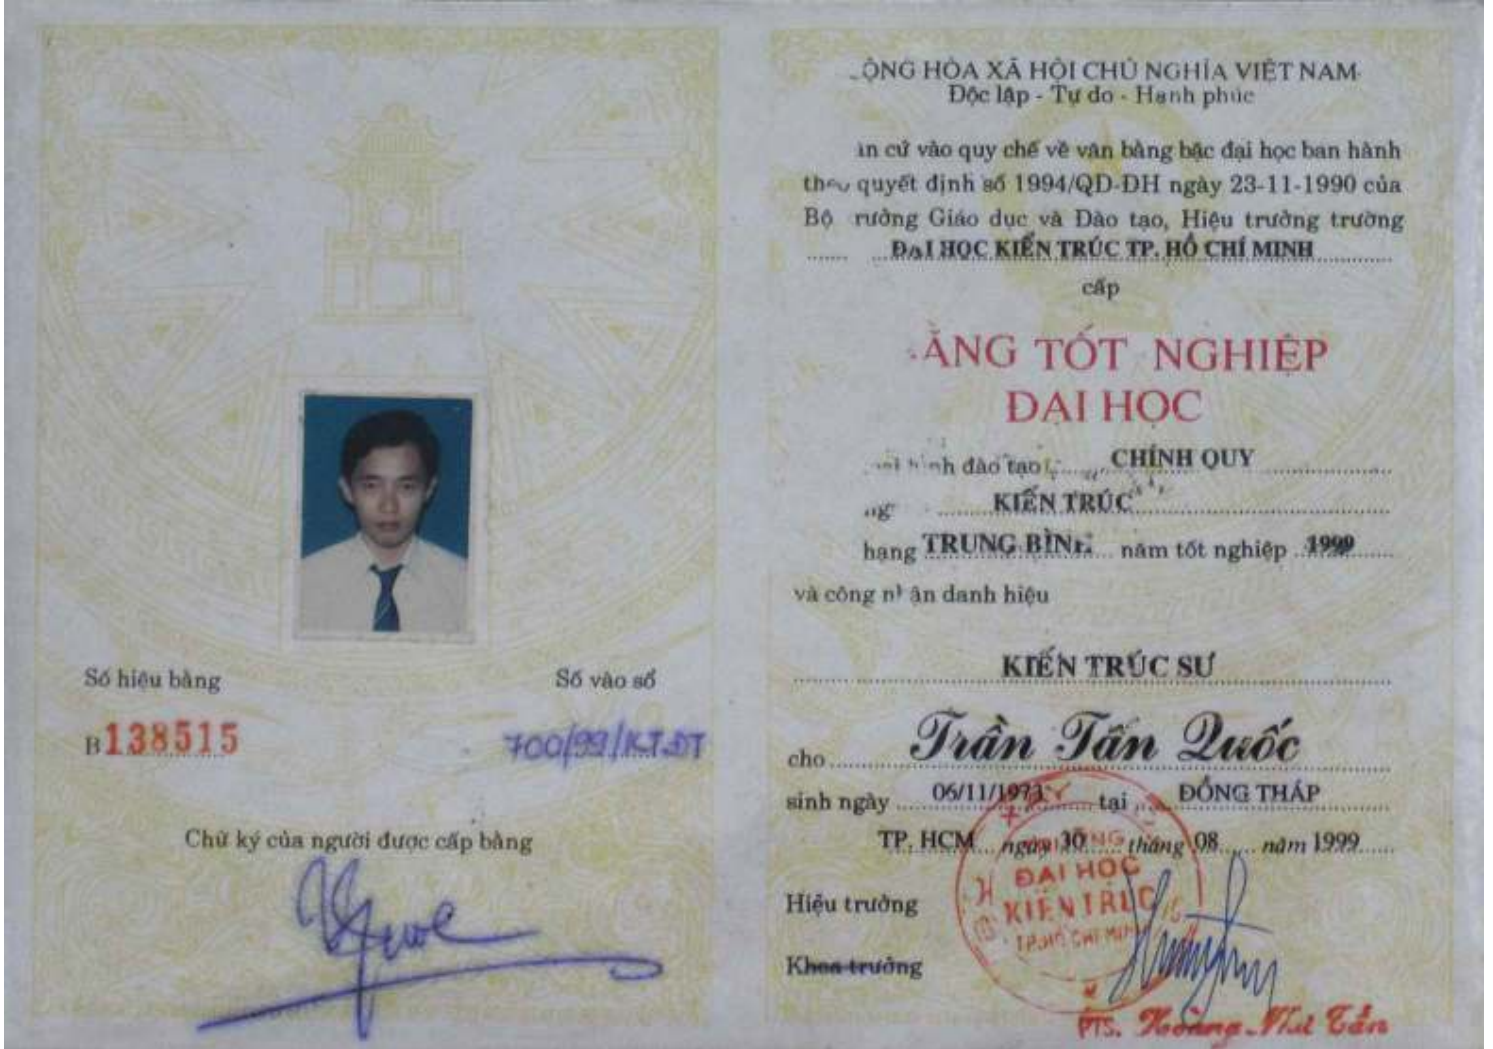 Số hiệu bằng
Số vào sổ
B 138515
700/99/KT.ĐT
Chữ ký của người được cấp bằng
ỘNG HÒA XÃ HỘI CHỦ NGHĨA VIỆT NAM
Độc lập - Tự do - Hạnh phúc
cứ vào quy chế về văn bằng bậc đại học ban hành
quyết định số 1994/QD-ĐH ngày 23-11-1990 của
Bộ rưởng Giáo dục và Đào tạo, Hiệu trưởng trường
ĐẠI HỌC KIẾN TRÚC TP. HỒ CHÍ MINH
cấp
ẰNG TỐT NGHIỆP
ĐẠI HỌC
đào tạo CHÍNH QUY
KIẾN TRÚC
hạng TRUNG BÌNH năm tốt nghiệp 1999
và công nhận danh hiệu
KIẾN TRÚC SƯ
cho Trần Tấn Quốc
sinh ngày 06/11/1973 tại ĐỒNG THÁP
TP. HCM ngày 30 tháng 08 năm 1999
TRƯỜNG
ĐẠI HỌC
KIẾN TRÚC
TP.HỒ CHÍ MINH
Hiệu trưởng
Khoa trưởng
PTS. Hoàng Như Tấn